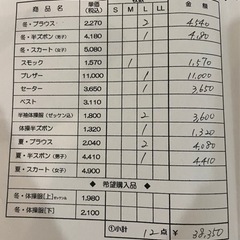 商品名 単価(税込) S M L LL 金額
冬・ブラウス 2,270 2 4,540
冬・半ズボン(男子) 4,180 1 4,180
冬・スカート(女子) 5,080
スモック 1,570 1 1,570
ブレザー 11,000 1 11,000
セーター 3,650 1 3,650
ベスト 3,110
半袖体操服(ゼッケン込) 1,800 2 3,600
体操半ズボン 1,320 1 1,320
夏・ブラウス 2,040 2 4,080
夏・半ズボン(男子) 4,410 1 4,410
夏・スカート(女子) 4,900
◆ 希望購入品 ◆
冬・体操服(上) 1,980
冬・体操服(下) 2,100
①小計 12点 ¥ 38,350